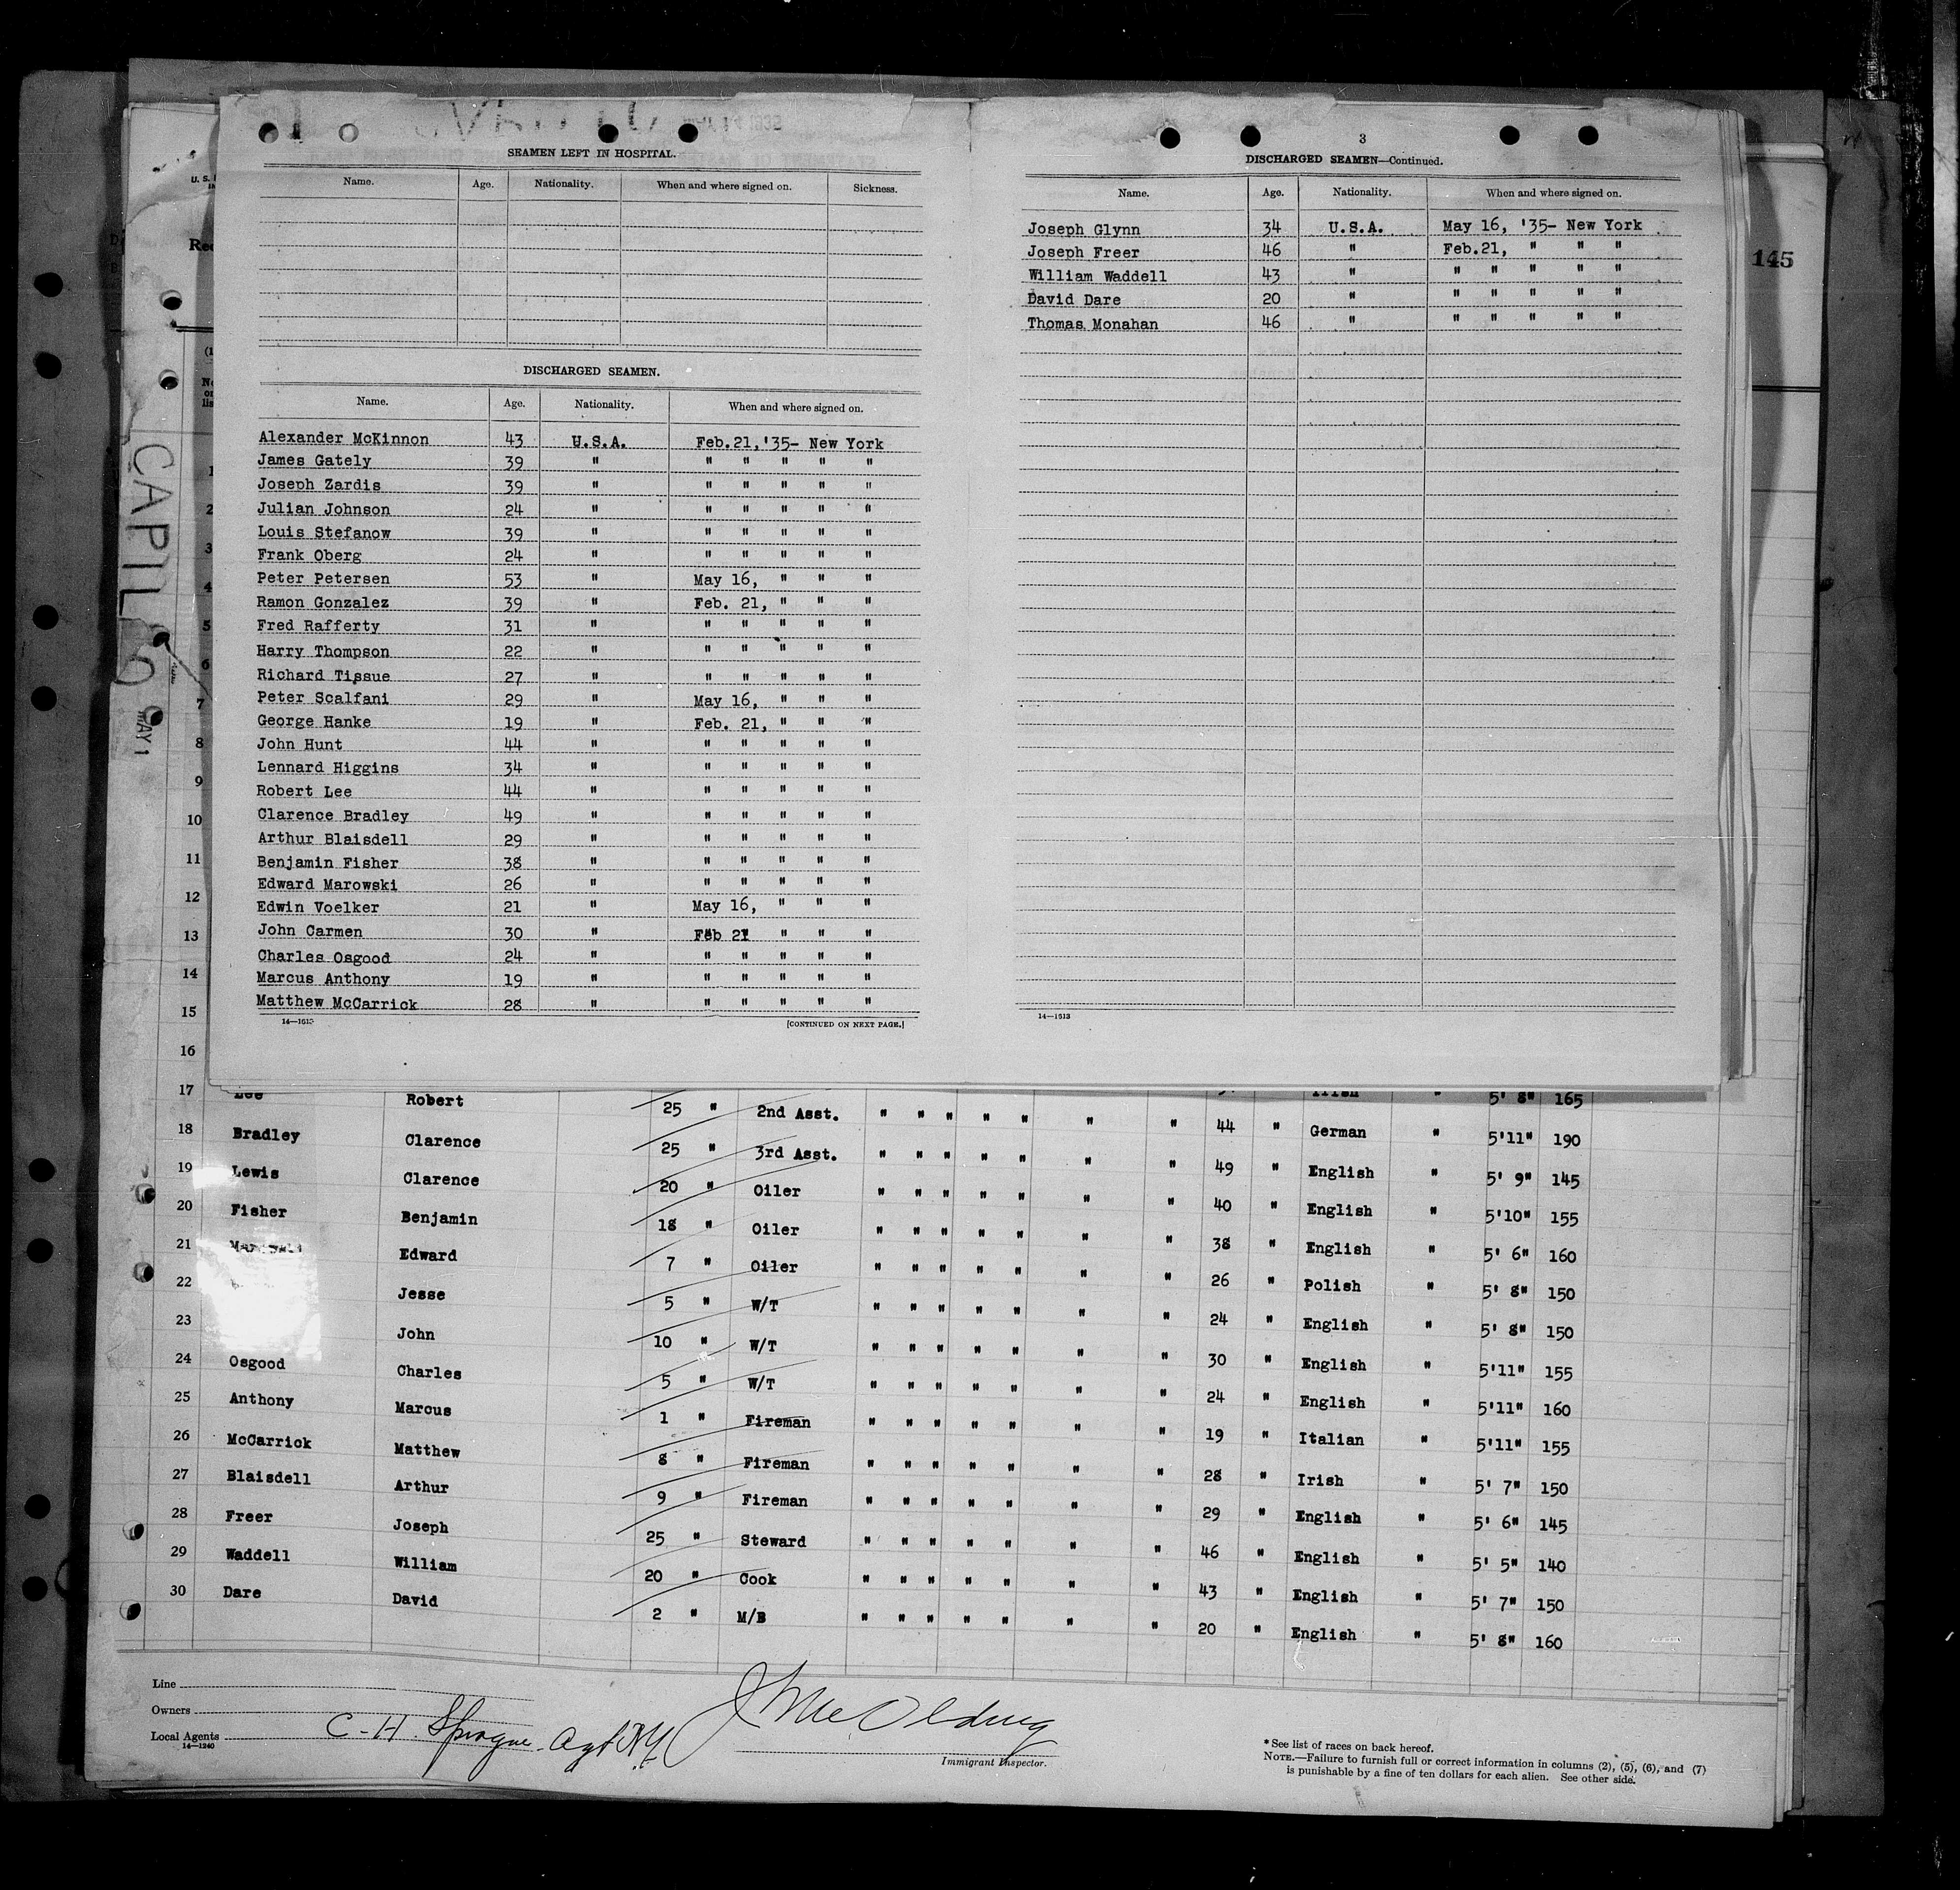 SEAMEN LEFT IN HOSPITAL.
Name. Age. Nationality. When and where signed on. Sickness.
DISCHARGED SEAMEN.
Name. Age. Nationality. When and where signed on.
Alexander McKinnon 43 U.S.A. Feb.21,'35- New York
James Gately 39 " " " " " "
Joseph Zardis 39 " " " " " "
Julian Johnson 24 " " " " " "
Louis Stefanow 39 " " " " " "
Frank Oberg 24 " " " " " "
Peter Petersen 53 " May 16, " " "
Ramon Gonzalez 39 " Feb. 21, " " "
Fred Rafferty 31 " " " " " "
Harry Thompson 22 " " " " " "
Richard Tissue 27 " " " " " "
Peter Scalfani 29 " May 16, " " "
George Hanke 19 " Feb. 21, " " "
John Hunt 44 " " " " " "
Lennard Higgins 34 " " " " " "
Robert Lee 44 " " " " " "
Clarence Bradley 49 " " " " " "
Arthur Blaisdell 29 " " " " " "
Benjamin Fisher 38 " " " " " "
Edward Marowski 26 " " " " " "
Edwin Voelker 21 " May 16, " " "
John Carmen 30 " Feb 21 " " "
Charles Osgood 24 " " " " " "
Marcus Anthony 19 " " " " " "
Matthew McCarrick 28 " " " " " "
14—1613 [CONTINUED ON NEXT PAGE.]
3
DISCHARGED SEAMEN—Continued.
Name. Age. Nationality. When and where signed on.
Joseph Glynn 34 U.S.A. May 16, '35- New York
Joseph Freer 46 " Feb.21, " " "
William Waddell 43 " " " " " "
David Dare 20 " " " " " "
Thomas Monahan 46 " " " " " "
14—1613
145
CAPILLO
MAY 1
1
2
3
4
5
6
7
8
9
10
11
12
13
14
15
16
17 Lee Robert 25 " 2nd Asst. " " " " " " " 44 " German " 5'11" 190
Irish " 5' 8" 165
18 Bradley Clarence 25 " 3rd Asst. " " " " " " " 49 " English " 5' 9" 145
19 Lewis Clarence 20 " Oiler " " " " " " " 40 " English " 5'10" 155
20 Fisher Benjamin 18 " Oiler " " " " " " " 38 " English " 5' 6" 160
21 Edward 7 " Oiler " " " " " " " 26 " Polish " 5' 8" 150
22 Jesse 5 " W/T " " " " " " " 24 " English " 5' 8" 150
23 John 10 " W/T " " " " " " " 30 " English " 5'11" 155
24 Osgood Charles 5 " W/T " " " " " " " 24 " English " 5'11" 160
25 Anthony Marcus 1 " Fireman " " " " " " " 19 " Italian " 5'11" 155
26 McCarrick Matthew 8 " Fireman " " " " " " " 28 " Irish " 5' 7" 150
27 Blaisdell Arthur 9 " Fireman " " " " " " " 29 " English " 5' 6" 145
28 Freer Joseph 25 " Steward " " " " " " " 46 " English " 5' 5" 140
29 Waddell William 20 " Cook " " " " " " " 43 " English " 5' 7" 150
30 Dare David 2 " M/B " " " " " " " 20 " English " 5' 8" 160
Line
Owners
Local Agents C-H. Sprague Agt NY
14—1240
Immigrant Inspector.
* See list of races on back hereof.
NOTE.—Failure to furnish full or correct information in columns (2), (5), (6), and (7)
is punishable by a fine of ten dollars for each alien. See other side.